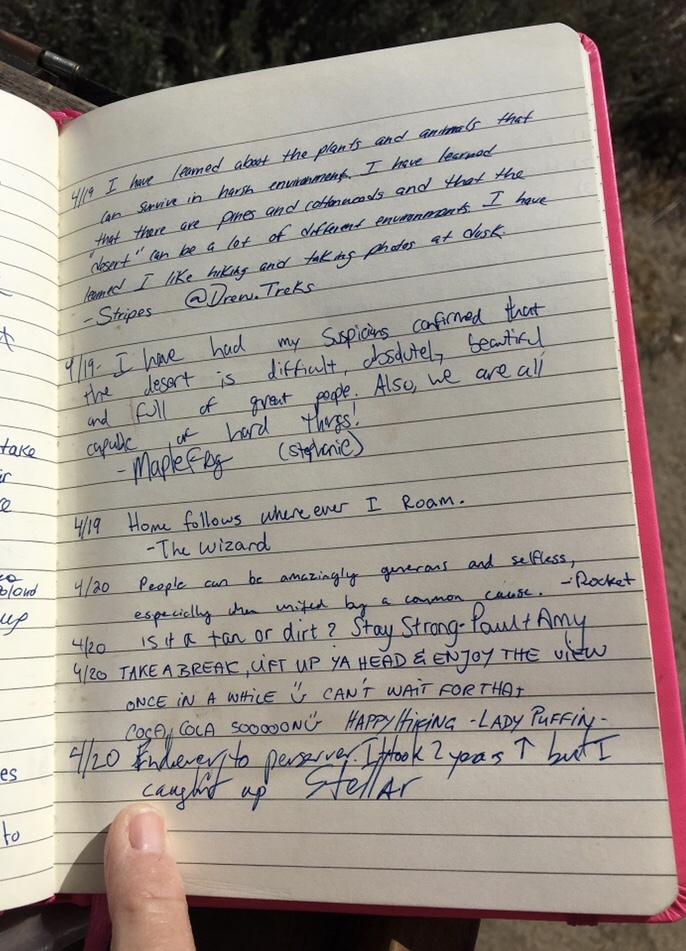 take
up
es
to
4/19 I have learned about the plants and animals that
can survive in harsh environments. I have learned
that there are pines and cottonwoods and that the
"desert" can be a lot of different environments. I have
learned I like hiking and taking photos at dusk.
- Stripes @Drew.Treks
4/19 - I have had my suspicions confirmed that
the desert is difficult, absolutely beautiful
and full of great people. Also, we are all
capable of hard things!
- MapleFrog (stephanie)
4/19 Home follows where ever I Roam.
- The Wizard
4/20 People can be amazingly generous and selfless,
especially when united by a common cause. - Rocket
4/20 is it a tan or dirt? Stay Strong - Paul + Amy
4/20 TAKE A BREAK, LIFT UP YA HEAD & ENJOY THE VIEW
ONCE IN A WHILE CAN'T WAIT FOR THAT
COCA COLA SOOOOON HAPPY HIKING - LADY PUFFIN -
4/20 Endever to perserver. It took 2 years ↑ but I
caught up Stellar